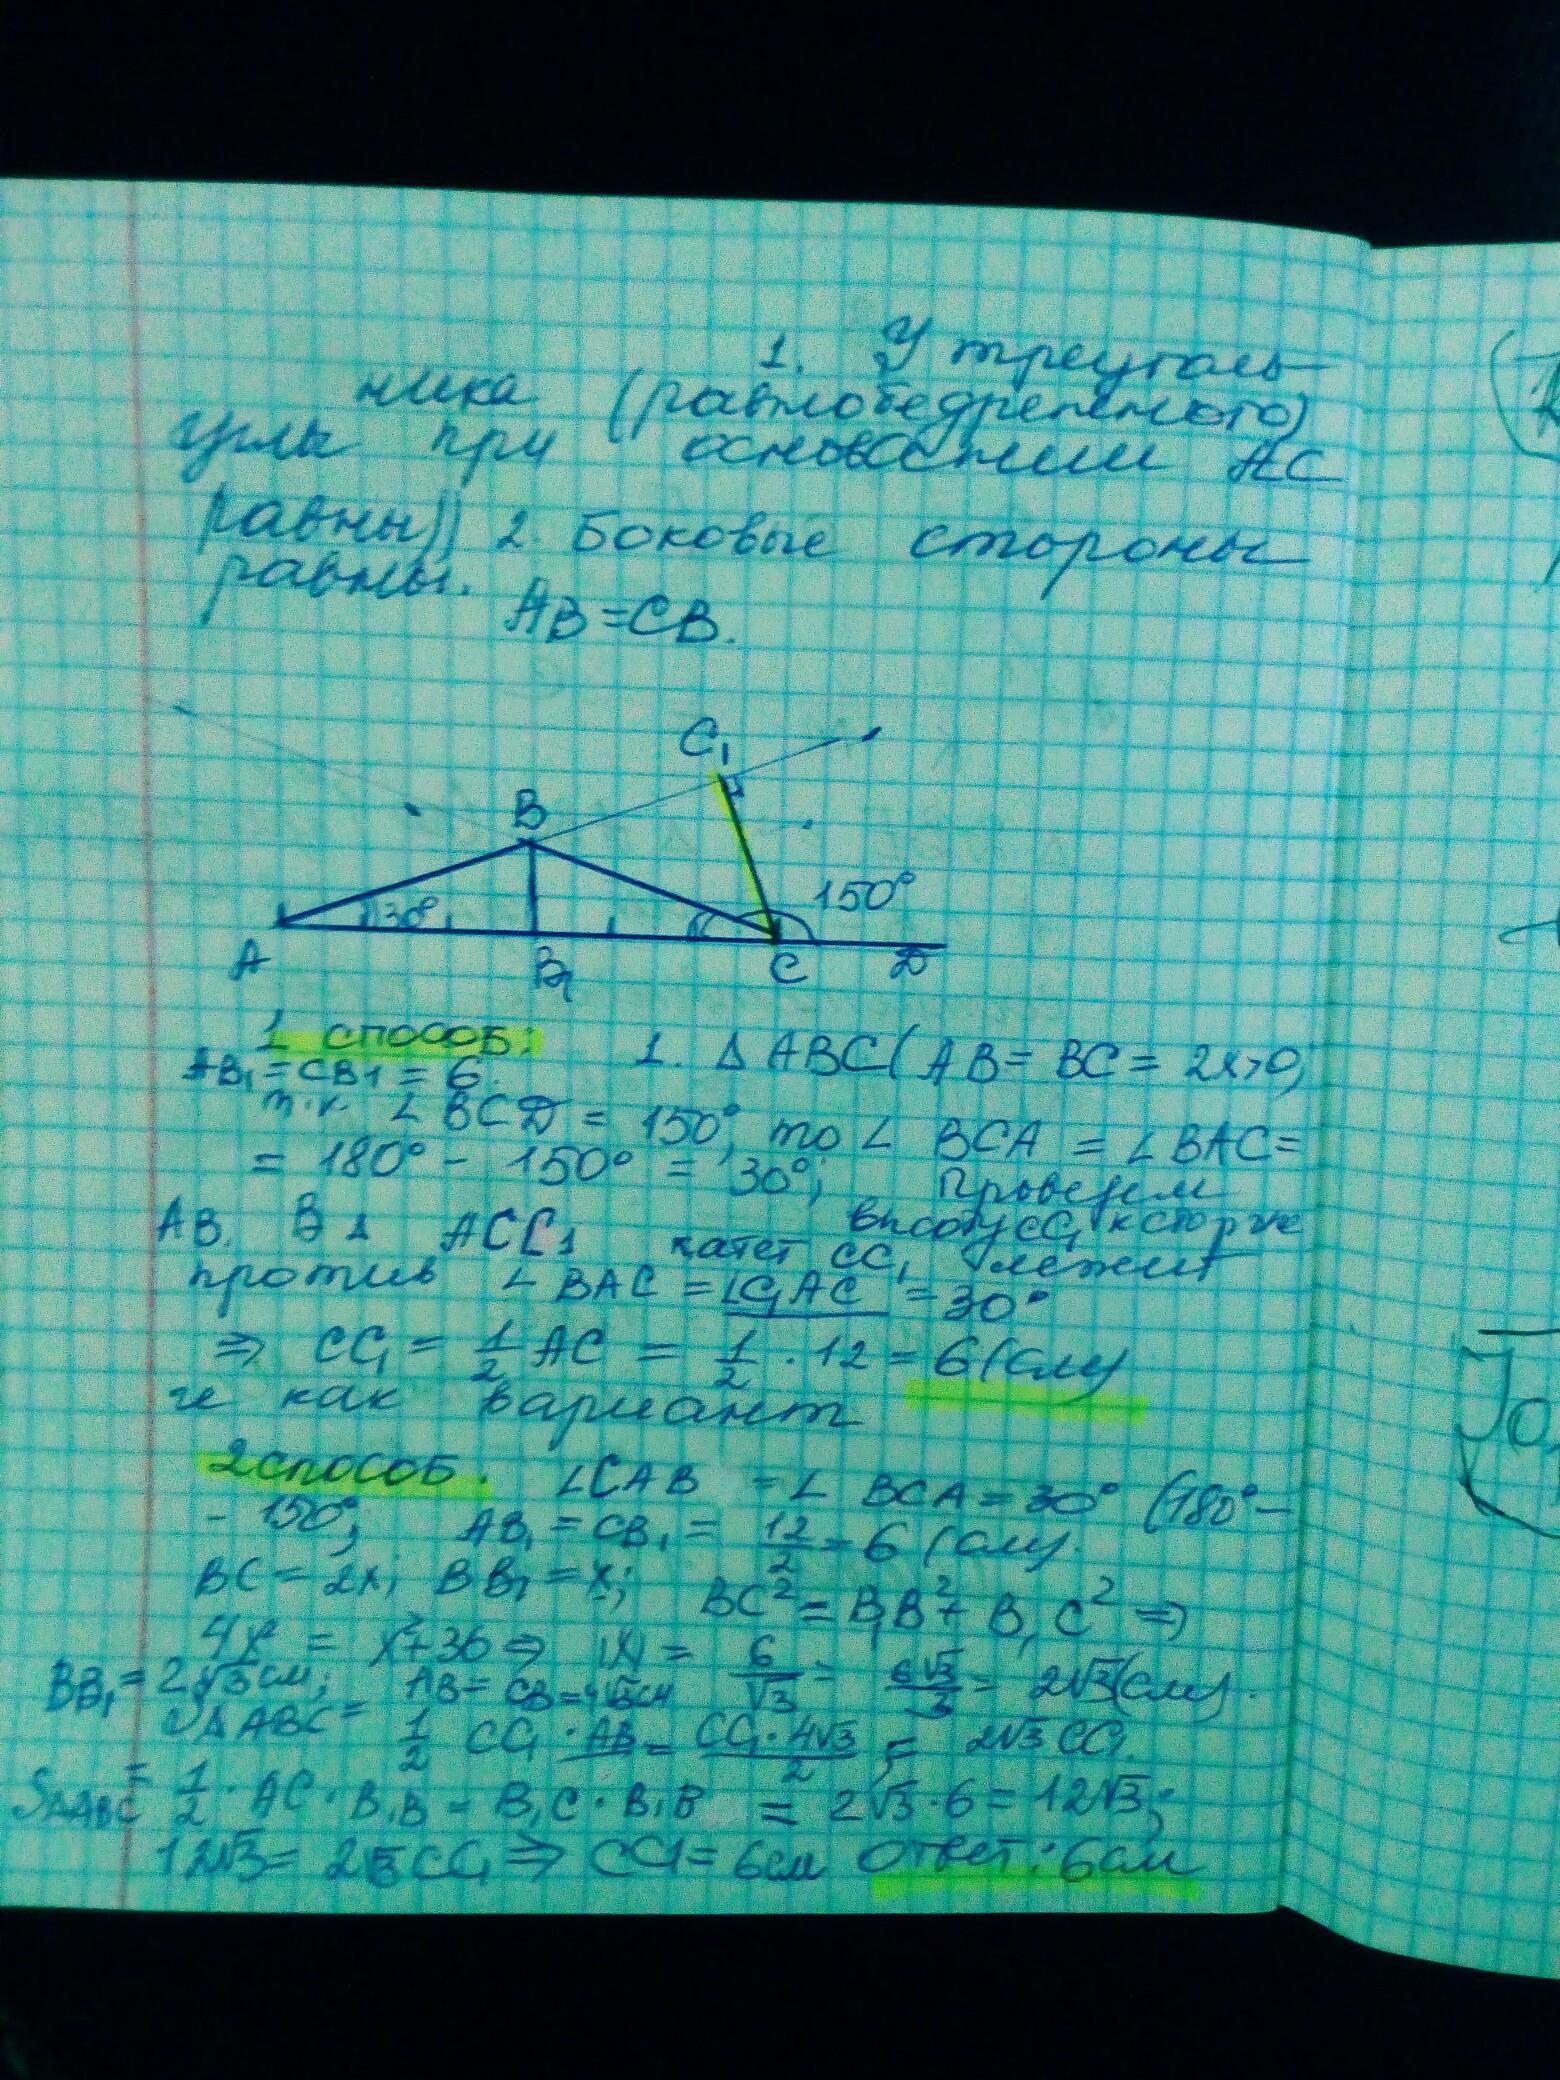 1. У треуголь-
ника (равнобедренного)
углы при основании AC
равны)) 2. Боковые стороны
равны.
AB=CB.
C₁
B
150°
30°
A B₁ C D
1 способ: 1. Δ ABC (AB = BC = 2x>0,
AB₁ = CB₁ = 6.
т.к. ∠ BCD = 150°, то ∠ BCA = ∠ BAC =
= 180° - 150° = 30°; Проведем
высоту CC₁ к стороне
AB. В Δ ACC₁ катет CC₁ лежит
против ∠ BAC = ∠C₁AC = 30°
⇒ CC₁ = 1/2 AC = 1/2 · 12 = 6 (см)
и как вариант
2 способ. ∠CAB = ∠ BCA = 30° (180° -
- 150°; AB₁ = CB₁ = 12/2 = 6 (см).
BC = 2x; BB₁ = x; BC² = B₁B² + B₁C² ⇒
4x² = x²+36 ⇒ |x| = 6/√3 = 6√3/3 = 2√3 (см).
BB₁ = 2√3 см; AB = CB = 4√3 см
SΔABC = 1/2 CC₁ · AB = CC₁ · 4√3/2 = 2√3 CC₁.
SΔABC = 1/2 · AC · B₁B = B₁C · B₁B = 2√3 · 6 = 12√3;
12√3 = 2√3 CC₁ ⇒ CC₁ = 6 см Ответ: 6 см